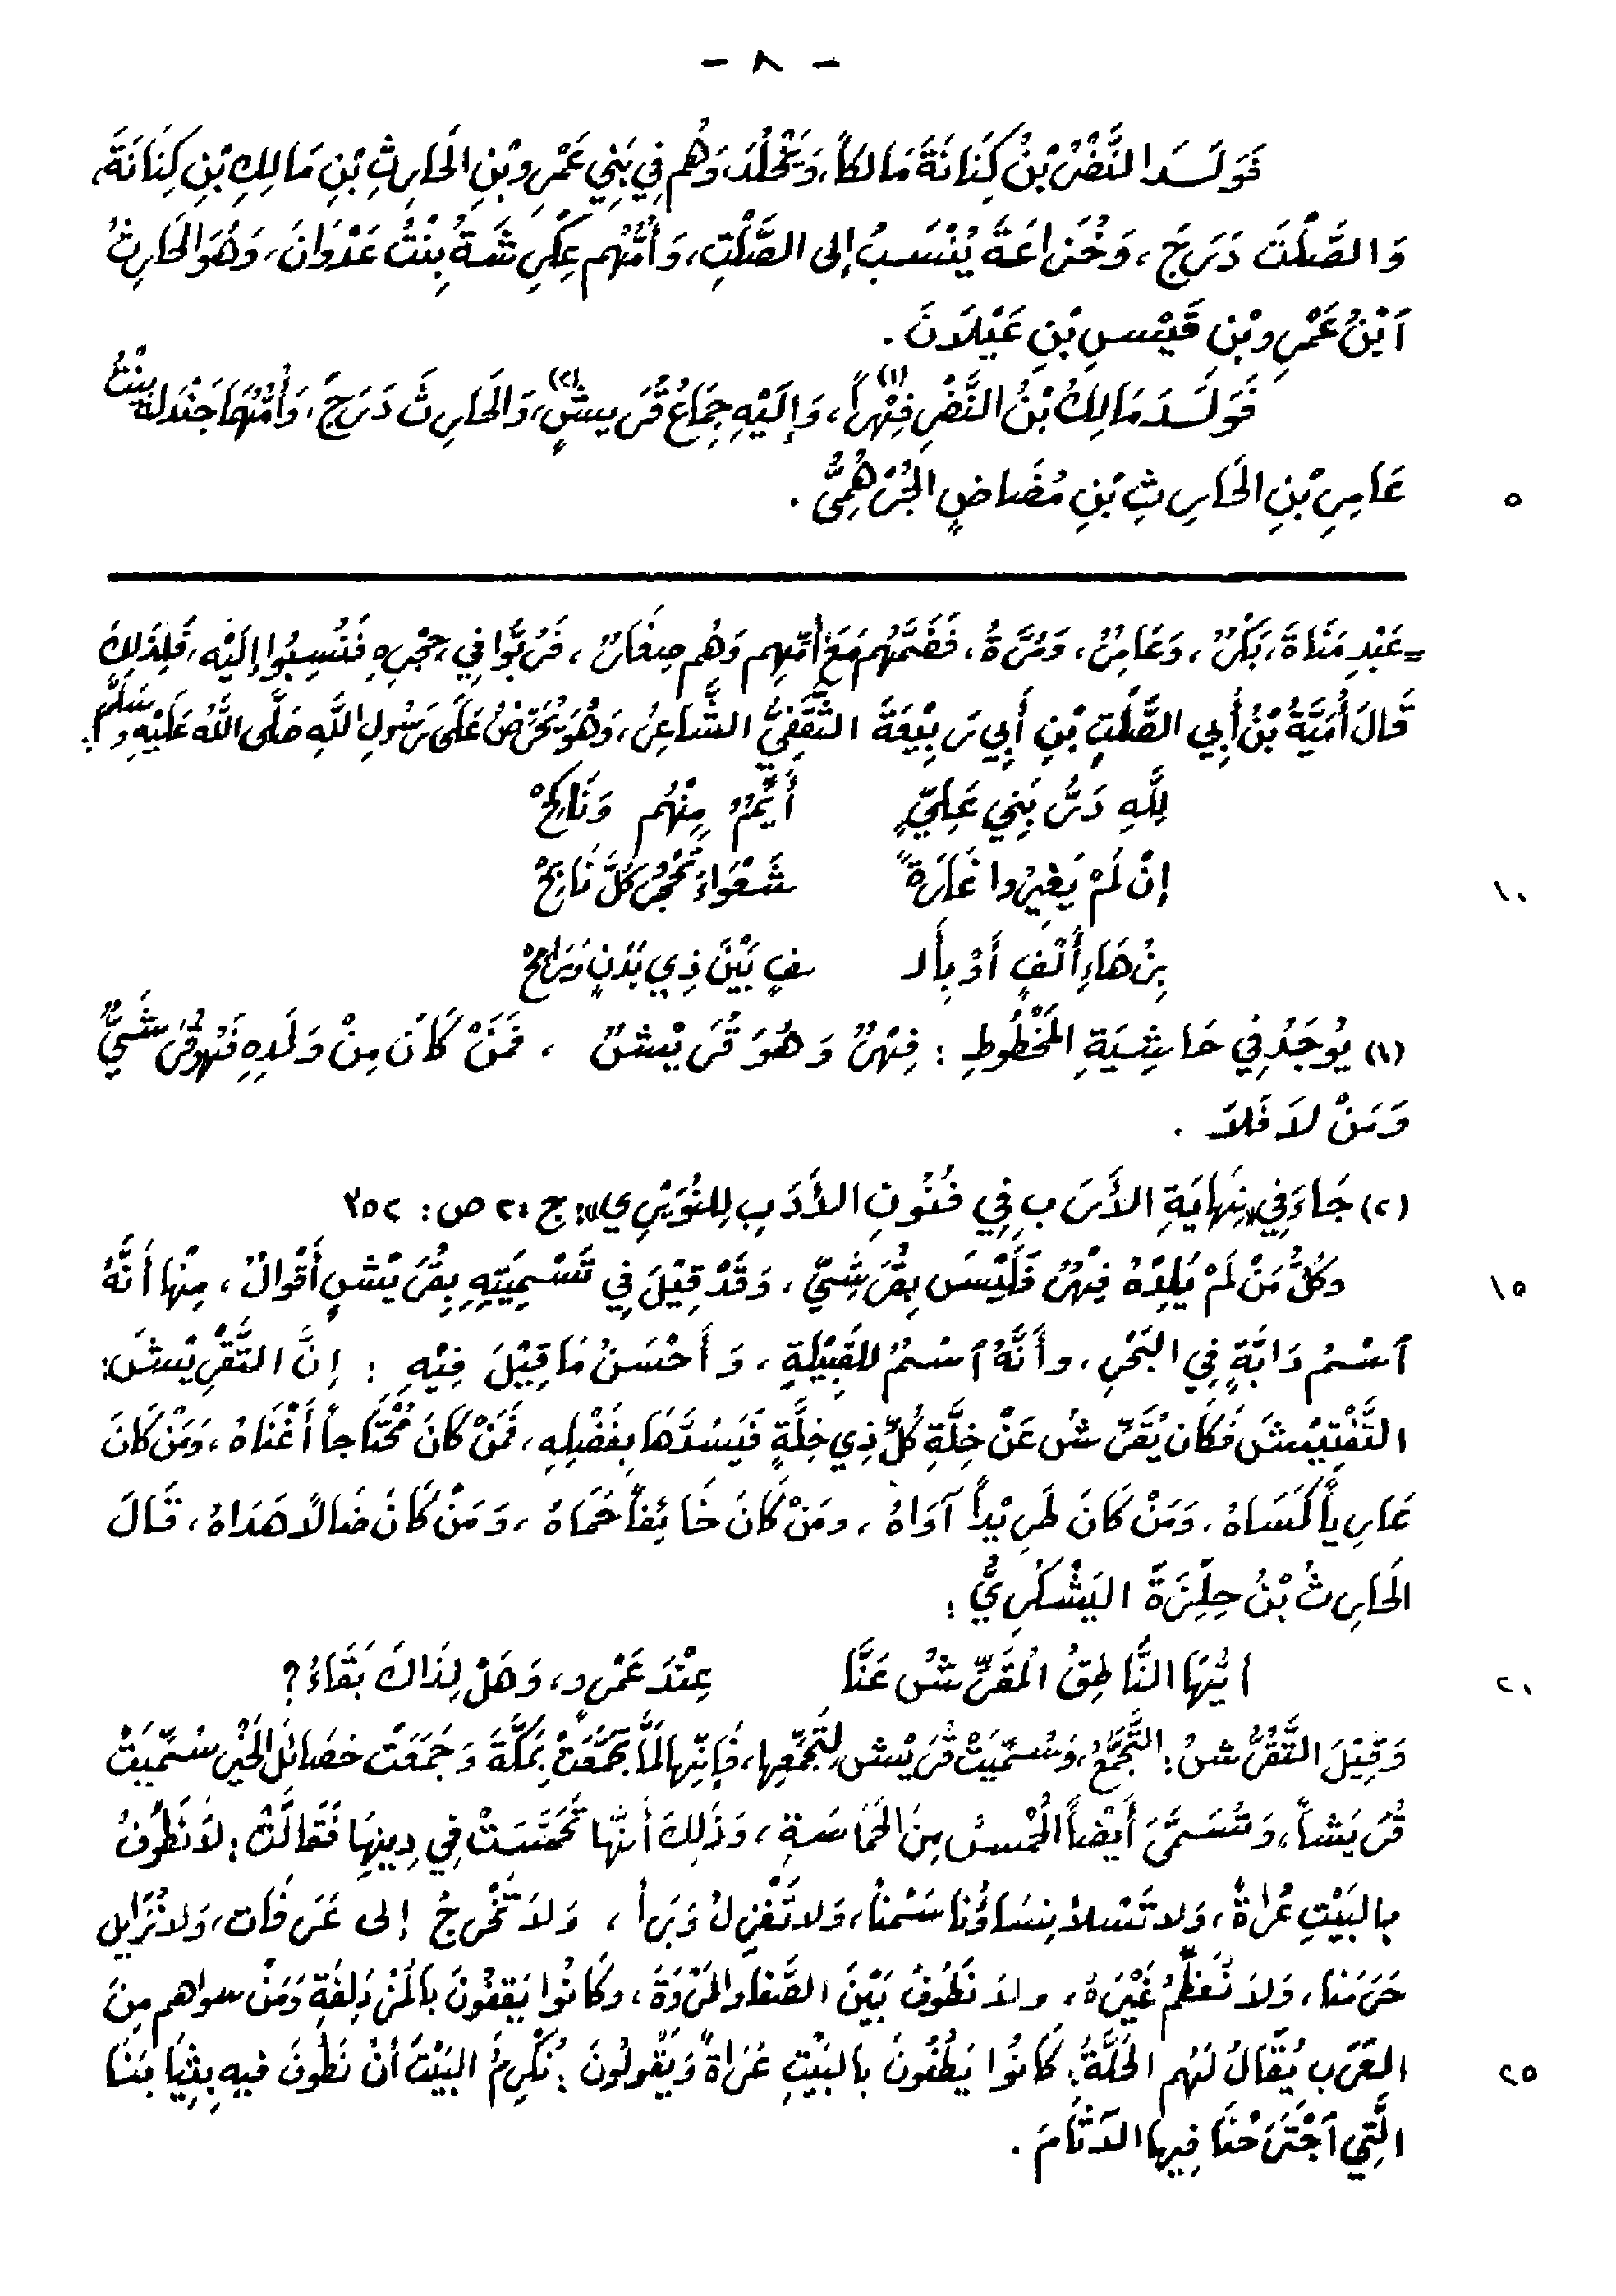 - ٨ -
فَوَلَدَ النَّضْرُ بْنُ كِنَانَةَ مَالكاً، وَيَخْلُدَ، وَهُم فِي بَنِي عَمْرِو بْنِ الحَارِثِ بْنِ مَالِكِ بْنِ كِنَانَةَ،
وَالصَّلْتَ دَرَجَ، وَخُزَاعَةُ يُنْسَبُ إلى الصَّلْتِ، وَأُمُّهُم عِكْرِشَةُ بِنْتُ عَدْوَانَ، وَهُوَ الحَارِثُ
آبْنُ عَمْرِو بْنِ قَيْسِ بْنِ عَيْلَانَ .
فَوَلَدَ مَالِكُ بْنُ النَّضْرِ فِهْراً (١)، وَإِلَيْهِ جِمَاعُ قُرَيشٍ (٢)، وَالحَارِثَ دَرَجَ، وَأُمُّهُمَا جَنْدَلَةُ بِنْتُ
عَامِرِ بْنِ الحَارِثِ بْنِ مُضَاضٍ الجُرْهُمِيُّ .
٥
= عَبْدِ مَنَاةَ، بَكْرٌ، وَعَامِرٌ، وَمُرَّةُ، فَضَمَّهُم مَعَ أُمِّهِم وَهُم صِغَارٌ، فَرُبُّوا فِي حِجْرِهِ فَنُسِبُوا إِلَيْهِ، فَلِذَلِكَ
قَالَ أُمَيَّةُ بْنُ أَبِي الصَّلْتِ بْنِ أَبِي رَبِيْعَةَ الثَّقَفِيُّ الشَّاعِرُ، وَهُوَ يُحَرِّضُ عَلَى رَسُولِ اللَّهِ صَلَّى اللَّهُ عَلَيْهِ وَسَلَّمَ:
لِلَّهِ دَرُّ بَنِي عَلِيٍّ أَيِّمٌ مِنْهُم وَنَاكِحْ
إِنْ لَمْ يَغِيْرُوا غَارَةً شَعْوَاءَ تُحْجِرُ كُلَّ نَابِحْ
١٠
بِزُهَاءِ أَلْفٍ أَوْ بِأَلـ ـفٍ بَيْنَ ذِي بَدَنٍ وَرَامِحْ
(١) يُوجَدُ فِي حَاشِيَةِ المَخْطُوطِ : فِهْرٌ وَهُوَ قُرَيْشٌ ، فَمَنْ كَانَ مِنْ وَلَدِهِ فَهُوَ قُرَشَيٌّ
وَمَنْ لاَ فَلاَ .
(٢) جَاءَ فِي «نِهايَةِ الأَرَبِ فِي فُنُونِ الأَدَبِ لِلنُّوَيْرِي»: ج ٢: ص: ٣٥٢
وَكُلُّ مَنْ لَمْ يَلِدْهُ فِهْرٌ فَلَيْسَ بِقُرَشِيٍّ، وَقَدْ قِيْلَ فِي تَسْمِيَتِهِ بِقُرَيْشٍ أَقْوالٌ، مِنْها أَنَّهُ
١٥
آسْمُ دَابَّةٍ فِي البَحْرِ، وأَنَّهُ آسْمٌ للقَبِيْلَةِ، وَأَحْسَنُ مَا قِيْلَ فِيْهِ : إِنَّ التَّقْرِيْشَ:
التَّفْتِيْشَ فَكَان يُقَرِّشُ عَنْ خِلَّةِ كُلِّ ذِي خِلَّةٍ فَيَسُدَّهَا بِفَضْلِهِ، فَمَنْ كَانَ مُحْتَاجاً أَغْنَاهُ، وَمَنْ كَانَ
عَارِياً كَسَاهُ، وَمَنْ كَانَ طَرِيْداً آوَاهُ، وَمَنْ كَانَ خَائِفاً حَمَاهُ، وَمَنْ كَانَ ضَالاً هَدَاهُ، قَالَ
الحَارِثُ بْنُ حِلِّزَةَ اليَشْكُرِيُّ :
أَيُّهَا النَّاطِقُ المُقَرِّشُ عَنَّا عِنْدَ عَمْرٍو، وَهَلْ لِذَاكَ بَقَاءُ؟
٢٠
وَقِيْلَ التَّقَرُّشُ: التَّجَمُّعُ، وَسُمِّيَتْ قُرَيْش لِتَجَمُّعِها، فَإِنَّها لَمَّا تَجَمَّعَتْ بِمَكَّةَ وَجَمَعَتْ خصَائلَ الخَيْرِ سُمِّيَتْ
قُرَيَشاً، وَتُسَمَّى أَيْضاً الحُمْسُ مِنَ الحَمَاسَةِ، وَذَلِكَ أَنَّها تَحَمَّسَتْ فِي دِينِهَا فَقَالَتْ: لاَ نَطُوفُ
بالبَيْتِ عُرَاةً، وَلا تَسْلأُ نِسَاؤُنَا سَمْناً، وَلا تَغْزِلُ وَبَراً ، وَلاَ تَخْرجُ إلى عَرَفَات، وَلا نُزَايِل
حَرَمَنا، وَلاَ نُعَظِّمُ غَيْرَهُ، ولاَ نَطُوفُ بَيْنَ الصَّفا والمَرْوَةَ، وَكَانُوا يَقِفُونَ بالمُزْدَلِفَةِ وَمَنْ سواهم مِنَ
العَرَبِ يُقَالُ لَهُم الحَلَّةُ: كَانُوا يَطُفُونَ بالبَيْتِ عُرَاةً وَيَقُولُونَ : نُكْرِمُ البَيْتَ أَنْ نَطُوفَ فيهِ بِثِيَابَنَا
٢٥
الَّتِي آجْتَرَحْنَا فِيها الآثَامَ .